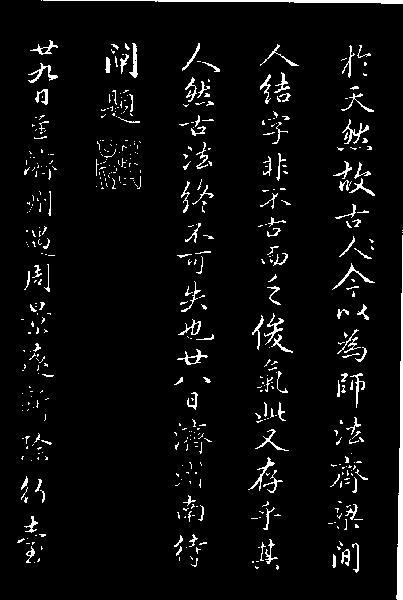 於天然故古人今以為師法齊梁間
人結字非不古而乏俊氣此又存乎其
人然古法終不可失也廿八日濟州南待
閘題
廿九日至濟州遇周景遠新除行臺